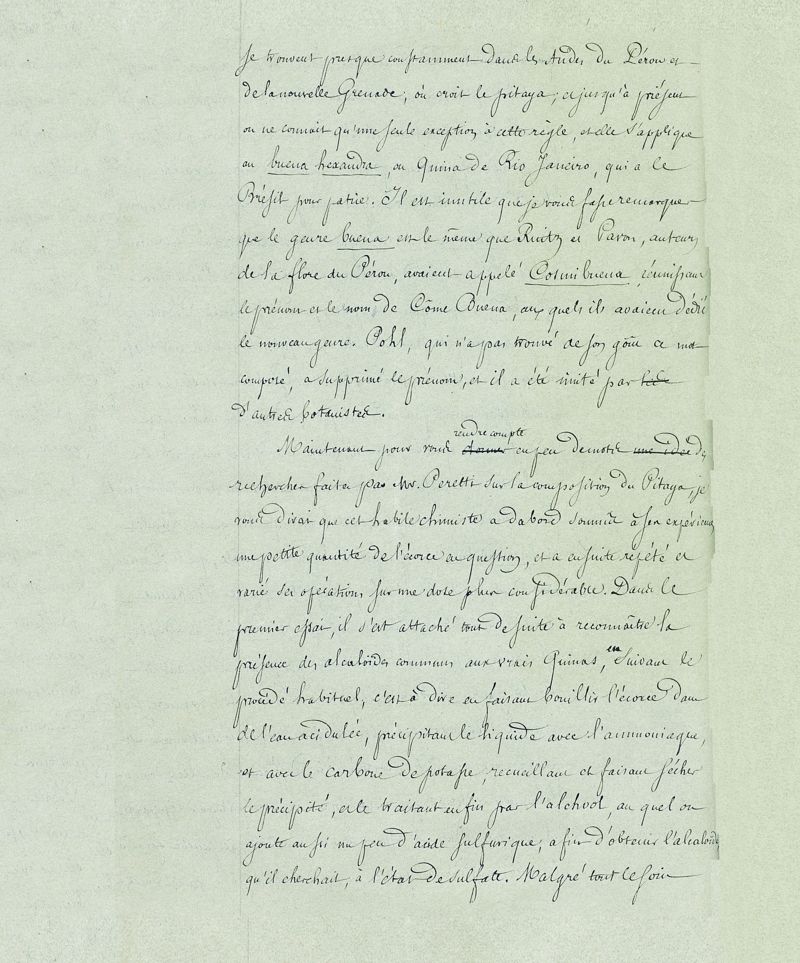 se trouvent presque constamment dans les Andes du Pérou et
de la nouvelle Grenade, où croit le pitaya; et jusqu'à présent
on ne connait qu'une seule exception à cette règle, et elle s'applique
au buena hexandra, ou Quina de Rio Janeiro, qui a le
Brésil pour patrie. Il est inutile que je vous fasse remarquer
que le genre buena est le même que Ruitz et Pavon, auteurs
de la flore du Pérou, avaient appelé Cosmibuena, réunissant
le prénom et le nom de Côme Buena, aux quels ils avaient dédié
le nouveau genre. Pohl, qui n'a pas trouvé de son goût ce mot
composé, a supprimé le prénom, et il a été imité par
d'autres botanistes.
Maintenant pour vous rendre compte donner en peu de mots une idée des
recherches faites par Mr. Peretti sur la composition du Pitaya, je
vous dirai que cet habile chimiste a d'abord soumis à ses expériences
une petite quantité de l'écorce en question, et a ensuite répété et
varié ses opérations sur une dose plus considérable. Dans le
premier essai, il s'est attaché tout de suite à reconnaître la
présence des alcaloïdes communs aux vrais Quinas, en suivant le
procédé habituel, c'est à dire en faisant bouillir l'écorce dans
de l'eau acidulée, précipitant le liquide avec l'ammoniaque,
et avec le carbone de potasse, recueillant et faisant sécher
le précipité, et le traitant enfin par l'alchool, au quel on
ajoute aussi un peu d'acide sulfurique, afin d'obtenir l'alcaloïde
qu'il cherchait, à l'état de sulfate. Malgré tout le soin